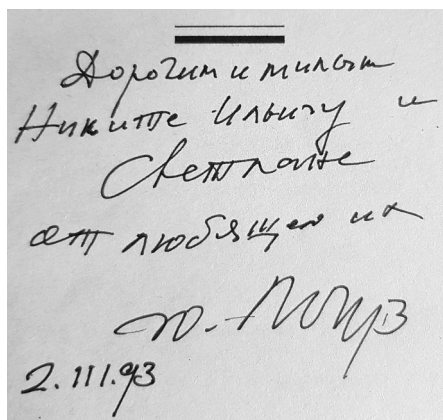 Дорогим и милым
Никите Ильичу и
Светлане
от любящего их
Ю.
2.III.93